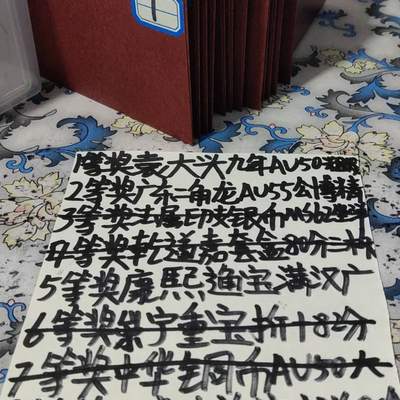 1等奖袁大头九年AU50
2等奖广东二角龙AU55公博
3等奖法属印支银币MS62坐洋
4等奖乾道嘉套金80分三枚
5等奖康熙通宝满汉广
6等奖崇宁重宝折十82分
7等奖中华铜币AU50大